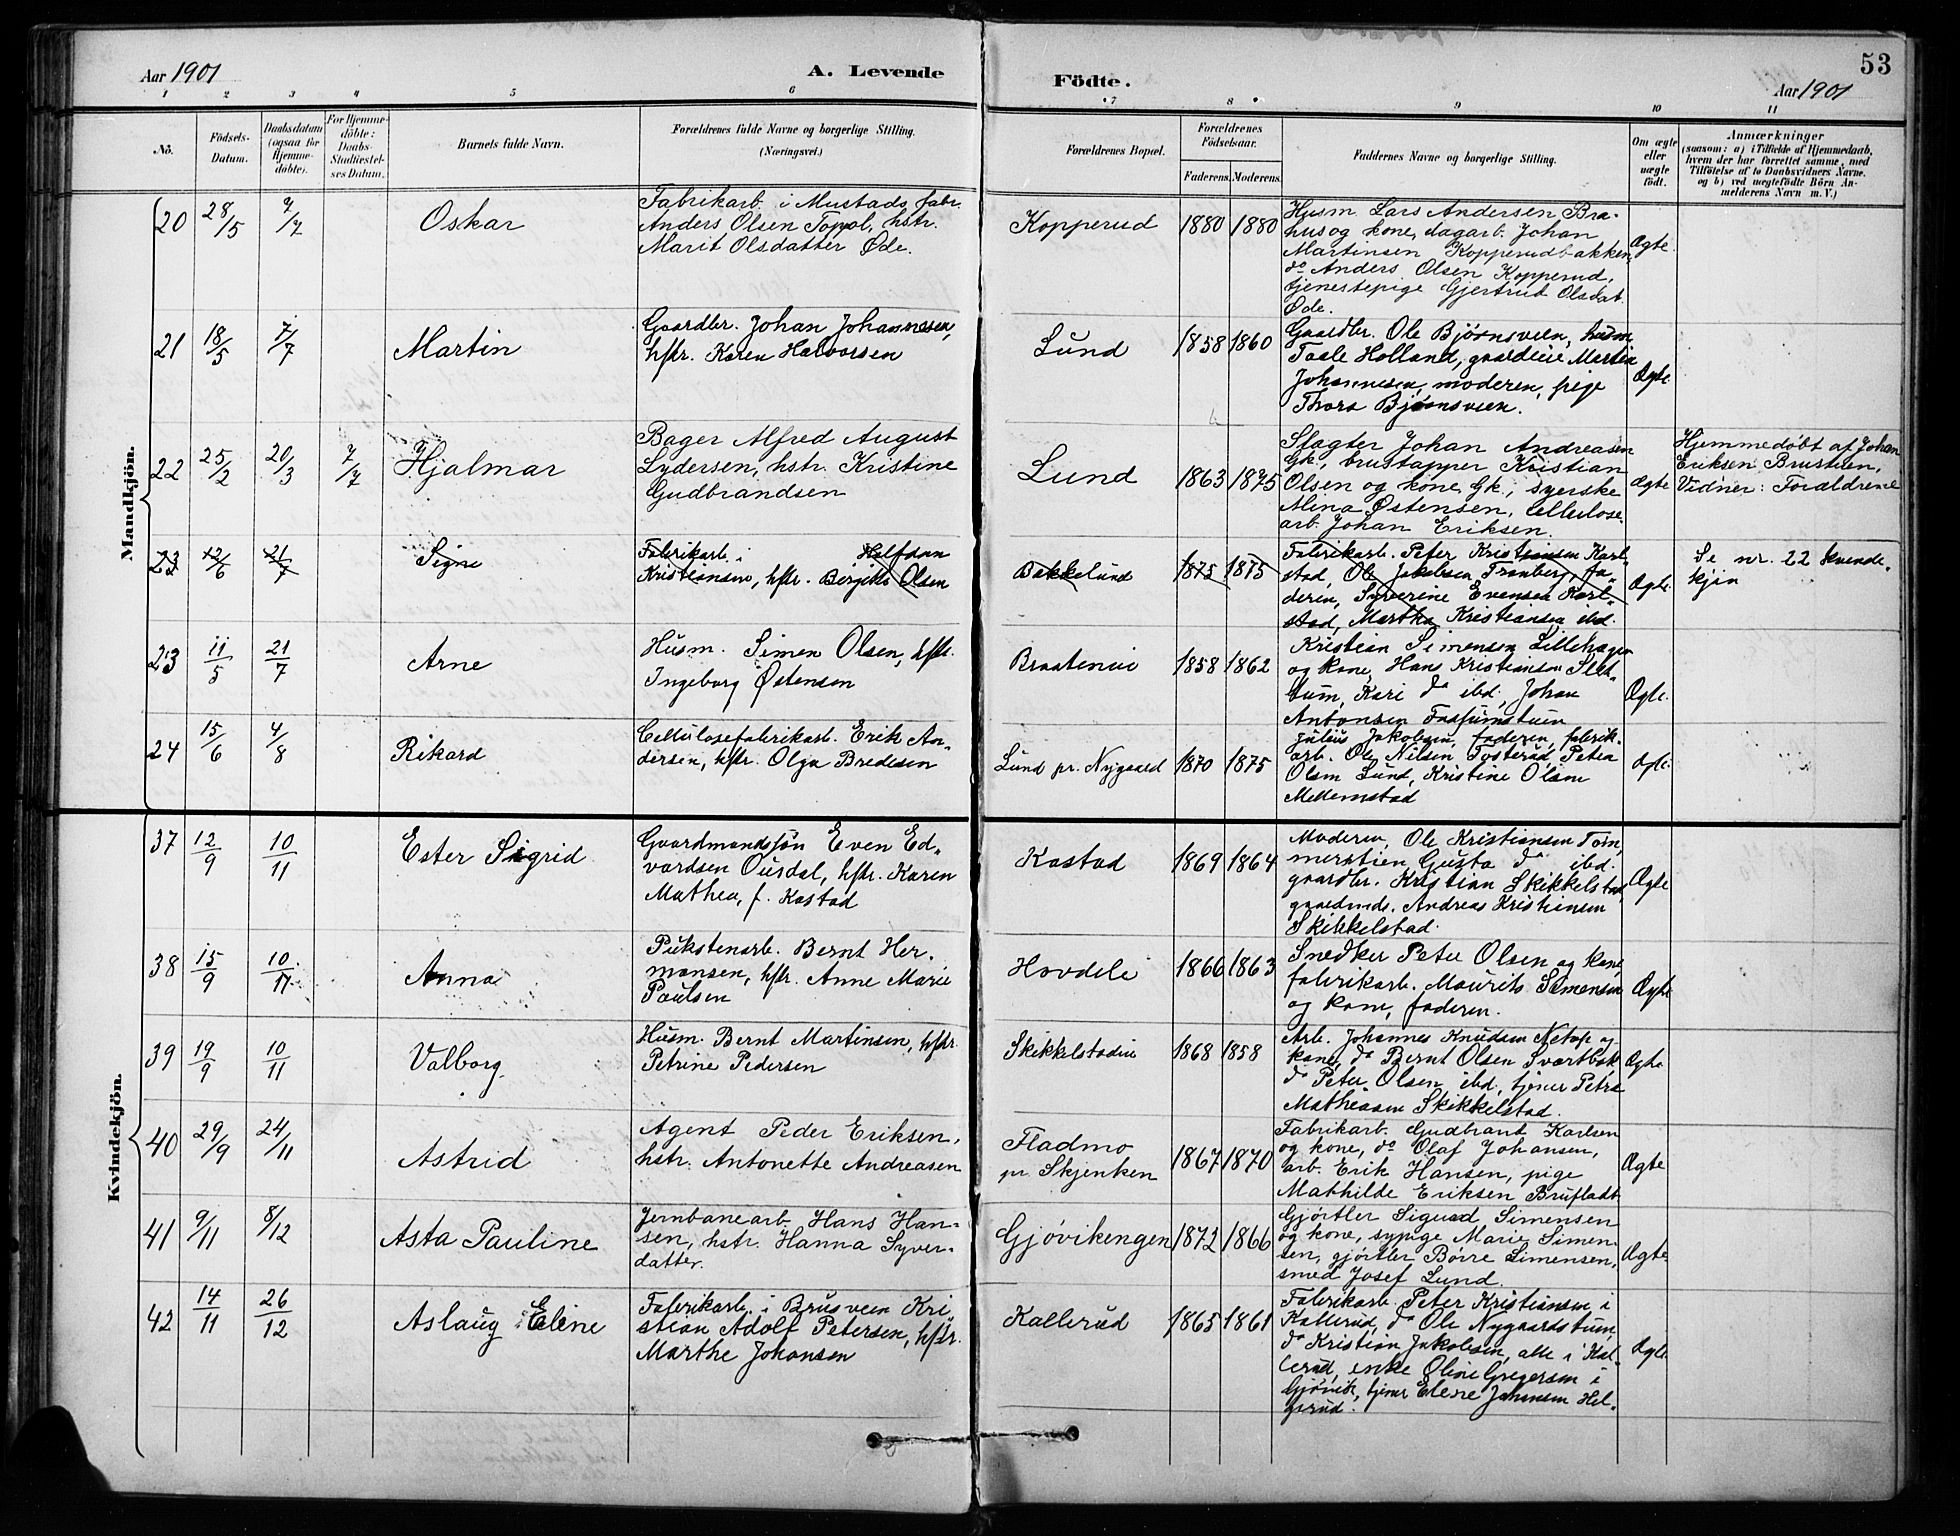 53
Aar 1901
A. Levende
Födte.
Aar 1901
1 2 3 4 5 6 7 8 9 10 11
No.
Födsels-
Datum.
Daabsdatum
(ogsaa for
Hjemme-
döbte).
For Hjemme-
döbte:
Daabs-
Stadfæstel-
ses Datum.
Barnets fulde Navn.
Forældrenes fulde Navne og borgerlige Stilling.
(Næringsvei.)
Forældrenes Bopæl.
Forældrenes
Födselsaar.
Faderens. Moderens.
Faddernes Navne og borgerlige Stilling.
Om ægte
eller
uægte
födt.
Anmærkninger
(saasom: a) i Tilfælde af Hjemmedaab,
hvem der har forrettet samme, med
Tilföielse af to Daabsvidners Navne.
og b) ved uægtefödte Börn An-
melderens Navn m. V.)
Mandkjön.
20 28/5 7/7 Oskar
Fabrikarb. i Mustads fabr.
Anders Olsen Toppol, hstr.
Marit Olsdatter Øde.
Kopperud 1880 1880
Husm. Lars Andersen Bra-
hus og kone, dagarb. Johan
Martinsen Kopperudbakken,
do Anders Olsen Kopperud,
tjenestepige Gjertrud Olsdat.
Øde.
Ægte
21 18/5 7/7 Martin
Gaardbr. Johan Johannesen,
hstr. Karen Halvorsen
Lund 1858 1860
Gaardbr. Ole Bjørnsveen, husm.
Taale Holland, gaardeier Martin
Johannesen, moderen, pige
Thora Bjørnsveen.
Ægte
22 25/2 20/3 7/7 Hjalmar
Bager Alfred August
Lydersen, hstr. Kristine
Gudbrandsen
Lund 1863 1875
Slagter Johan Andreasen
Gk., brustapper Kristian
Olsen og kone Gk., syerske
Alina Østensen, cellulose-
arb. Johan Eriksen.
Ægte
Hjemmedøbt af Johan
Eriksen Brustuen,
Vidner: Forældrene
23 12/6 21/7 Signe
Fabrikarb. i Halfdan
Kristiansen, hstr. Birgitte Olsen
Bakkelund 1875 1875
Fabrikarb. Peter Kristiansen Karl-
stad, Ole Jakobsen Tranberg, fa-
deren, Syverine Evensen Karl-
stad, Martha Kristiansen ibd.
Ægte
Se nr. 22 kvinde-
kjøn
23 11/5 21/7 Arne
Husm. Simen Olsen, hstr.
Ingeborg Østensen
Braateneie 1858 1862
Kristian Simensen Lillehagen
og kone, Hans Kristiansen Slet-
tum, Kari do ibd., Johan
Antonsen
Ægte.
24 15/6 4/8 Rikard
Cellulosefabrikarb. Erik An-
dersen, hstr. Olga Bredesen
Lund pr. Nygaard 1870 1875
Julius Jakobsen, faderen, fabrik-
arb. Ole Nilsen Fosterud, Petra
Olsen Lund, Kristine Olsen
Mellemstad
Ægte
Kvindekjön.
37 12/9 10/11 Ester Sigrid
Gaardmandssøn Even Ed-
vardsen Ousdal, hstr. Karen
Mathea, f. Kastad
Kastad 1869 1864
Moderen, Ole Kristiansen Tom-
merstien, Gusta do ibd.
gaardbr. Kristian Skikkelstad,
gaardmds. Andreas Kristiansen
Skikkelstad.
Ægte
38 15/9 10/11 Anna
Pukstenarb. Bernt Her-
mansen, hstr. Anne Marie
Paulsen
Hovdeli 1866 1863
Snedker Peter Olsen og kone,
fabrikarb. Maurits Simensen
og kone, faderen.
Ægte
39 19/9 10/11 Valborg.
Husm. Bernt Martinsen, hstr.
Petrine Pedersen
Skikkelstadeie 1868 1858
Arb. Johannes Knudsen Netop og
kone, do Bernt Olsen Svartbæk,
do Peter Olsen ibd., tjener Petra
Matheasen Skikkelstad.
Ægte
40 29/9 24/11 Astrid
Agent Peder Eriksen,
hstr. Antonette Andreasen
Fladmo
pr. Skjenken 1867 1870
Fabrikarb. Gudbrant Karlsen
og kone, do Olaf Johansen,
arb. Erik Hansen, pige
Mathilde Eriksen Brufladt
Ægte
41 9/11 8/12 Asta Pauline
Jernbanearb. Hans Han-
sen, hstr. Hanna Syver-
datter.
Gjøvikengen 1872 1866
Gjørtler Sigurd Simensen
og kone, sypige Marie Simen-
sen, gjørtler Børre Simensen,
smed Josef Lund.
Ægte
42 14/11 26/12 Aslaug Eline
Fabrikarb. i Brusveen Kri-
stian Adolf Petersen, hstr.
Marthe Johansen
Kallerud 1865 1861
Fabrikarb. Peter Kristiansen i
Kallerud, do Ole Nygaardstuen,
do Kristian Jakobsen, alle i Kal-
lerud, enke Oline Gregersen i
Gjøvik, tjener Elene Johansen Hel-
gerud.
Ægte